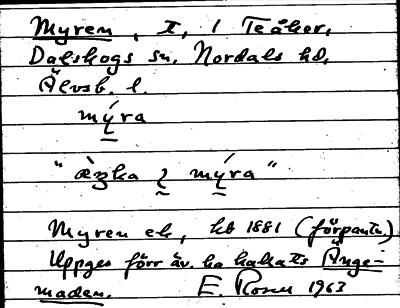 Myren, I, 1 Teåker,
Dalskogs sn, Nordals hd,
Älvsb. l.
mýra
" mýra"
Myren ek, hb 1881 (förpantn.)
Uppges förr äv. ha kallats Änge-
maden. E. Rosell 1963